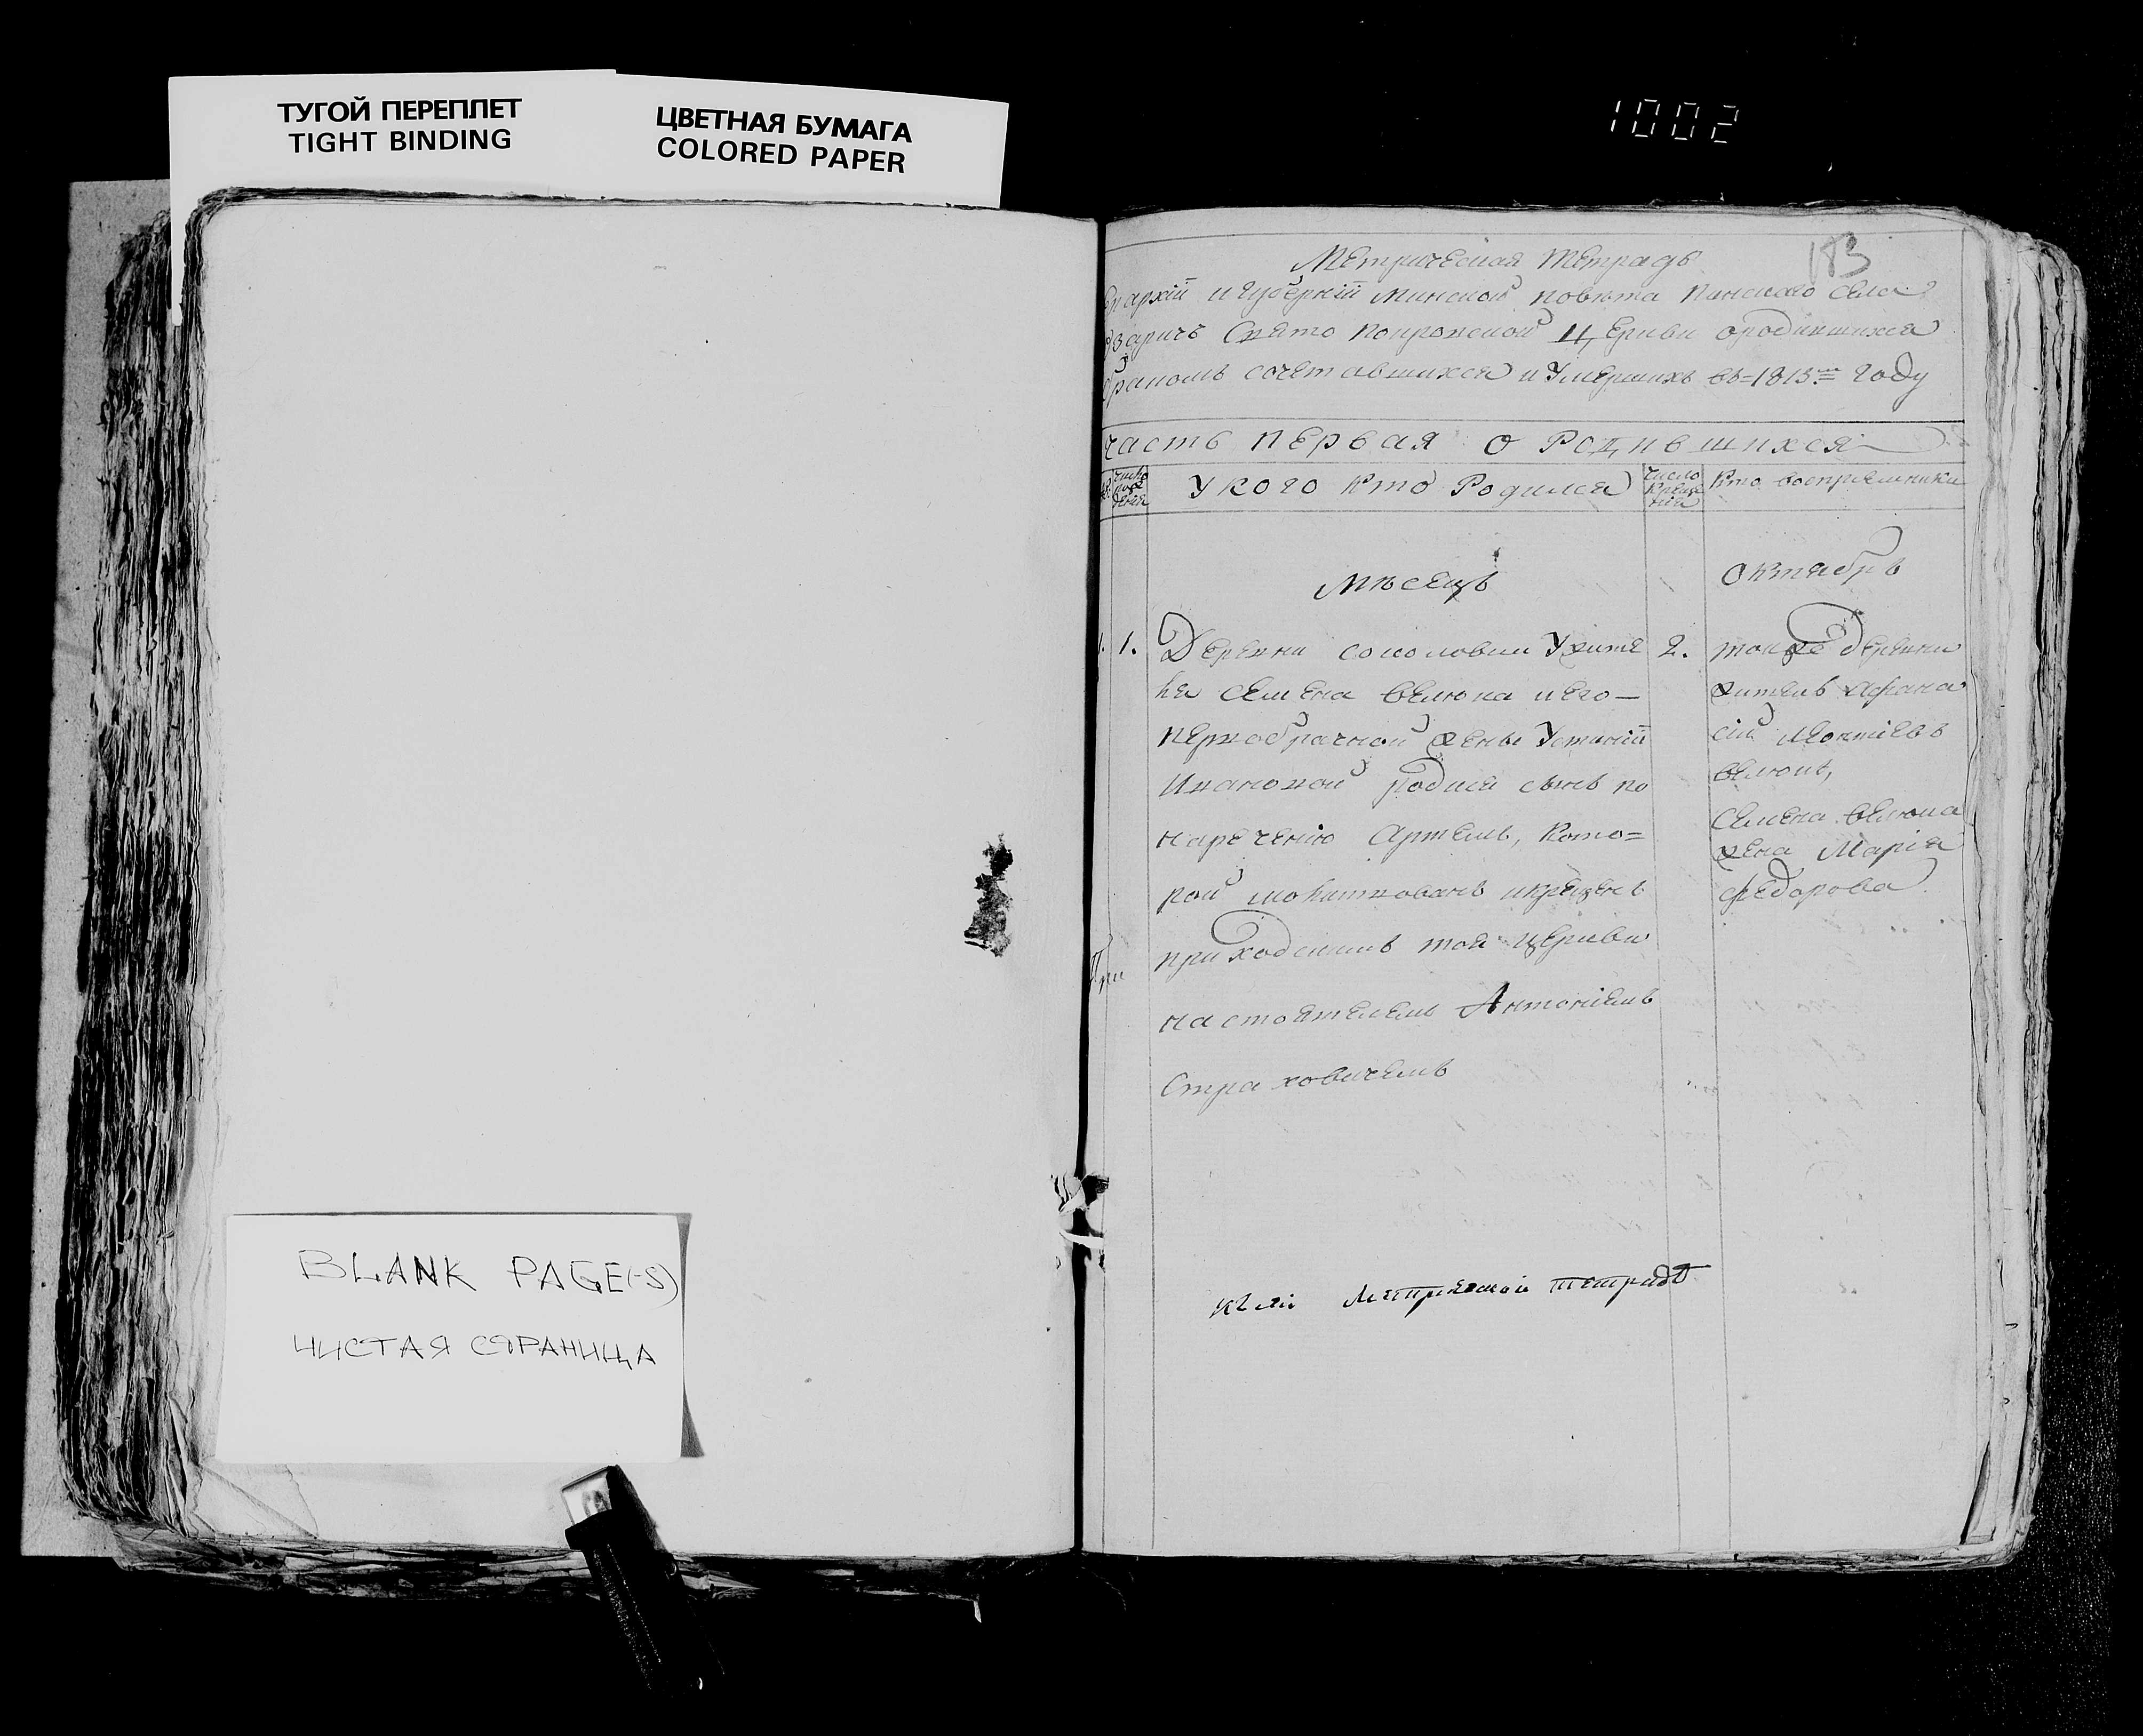 ТУГОЙ ПЕРЕПЛЕТ
TIGHT BINDING
ЦВЕТНАЯ БУМАГА
COLORED PAPER
1002
183
Метрическая тетрадь
Епархіи и Губерніи минской повѣта Пинскаго села
Свято покровской Церкви ородившихся
бракомъ сочетавшихся и Умершихъ въ 1813мъ году
часть первая о Родившихся
число рождения
У кого кто Родился
число крещения
Кто восприемники
Мѣсецъ
Октябрь
1. 1.
Деревни соколовки У жите
ля семена велюка и его
первобрачной жены Устиніи
Ивановой родися сынъ по
наречению Артемъ, кото=
рой молитвованъ икрещенъ
приходскимъ тоя церкви
настоятелемъ Антоніемъ
Страховичемъ
2.
тоиже деревни
житель афана
сій леонтіевъ
велюкъ,
семена велюка
жена Марія
федорова
При
метрической тетради
BLANK PAGE(-S)
ЧИСТАЯ СТРАНИЦА